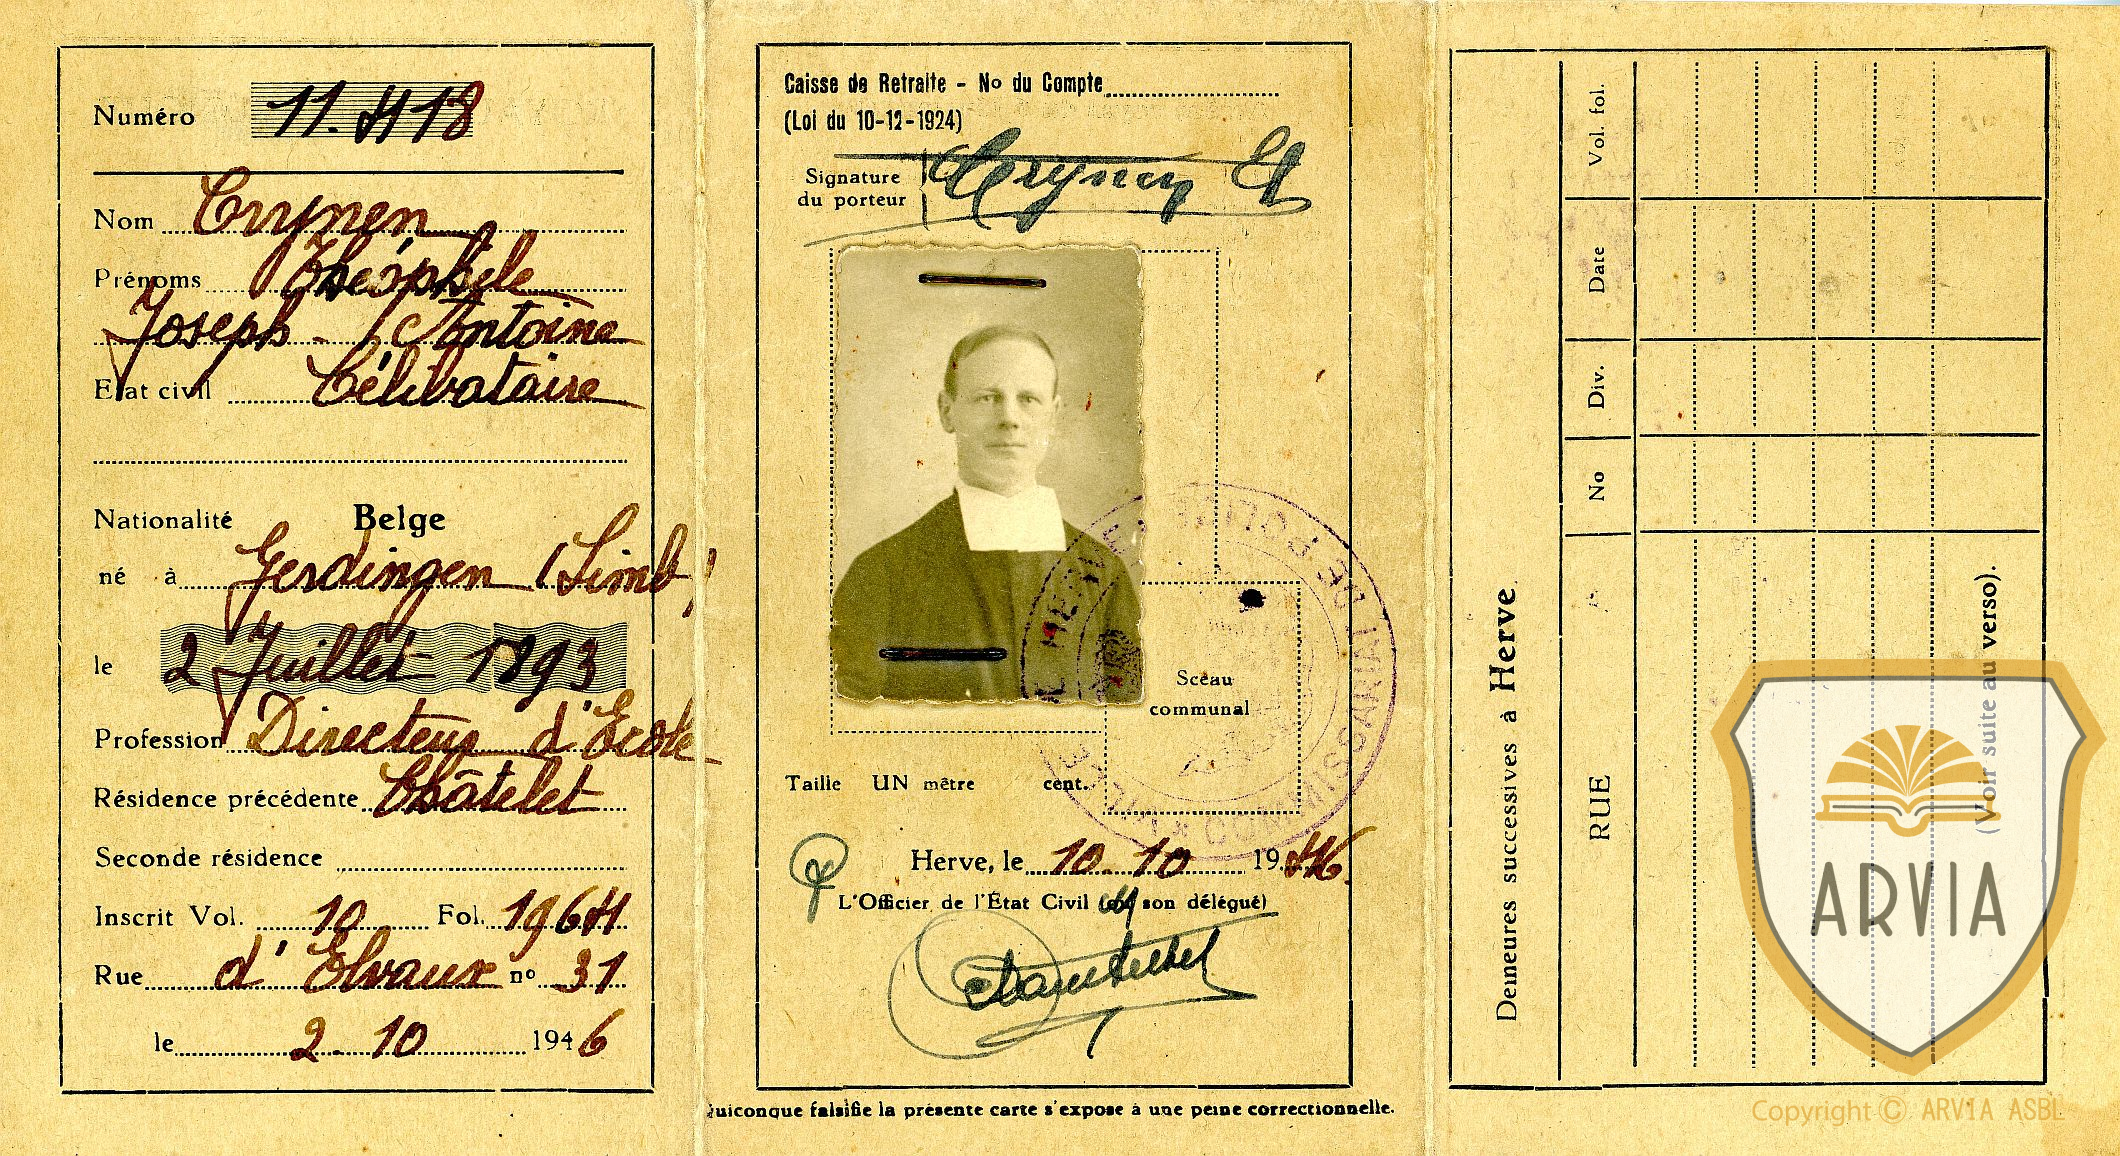 Numéro 11.418
Nom Crynen
Prénoms Théophile
Joseph - Antoine
Etat civil Célibataire
Nationalité Belge
né à Gerdingen (Limb.)
le 2 Juillet 1893
Profession Directeur d'Ecole
Résidence précédente Châtelet
Seconde résidence
Inscrit Vol. 10 Fol. 1964
Rue d'Elvaux no 31
le 2 - 10 1946
Caisse de Retraite - No du Compte
(Loi du 10-12-1924)
Signature
du porteur
Crynen
Sceau
communal
COMMISSARIAT DE POLICE
Taille UN mètre cent.
Herve, le 10.10 1946.
L'Officier de l'État Civil (ou son délégué)
Quiconque falsifie la présente carte s'expose à une peine correctionnelle.
Demeures successives à Herve
RUE No Div. Date Vol. fol.
(Voir suite au verso).
ARVIA
Copyright © ARVIA ASBL